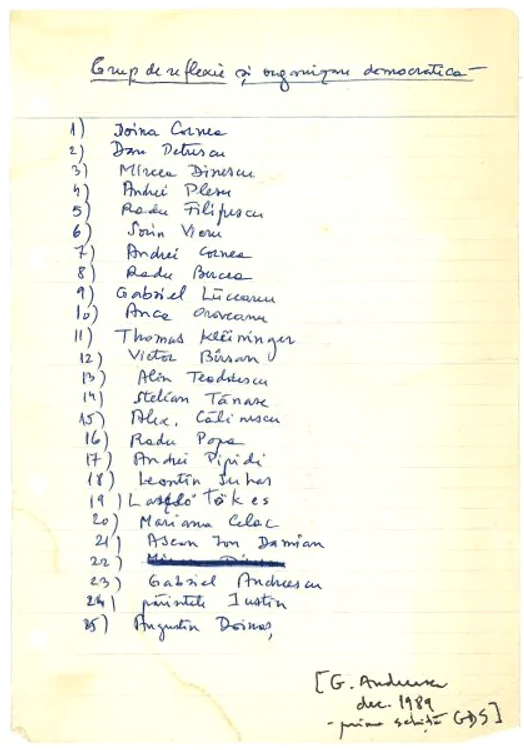 Grup de reflexie și organizare democratica –
1) Doina Cornea
2) Dan Petrescu
3) Mircea Dinescu
4) Andrei Plesu
5) Radu Filipescu
6) Sorin Vieru
7) Andrei Cornea
8) Radu Bercea
9) Gabriel Liiceanu
10) Anca Oroveanu
11) Thomas Kleininger
12) Victor Bârsan
13) Alin Teodorescu
14) Stelian Tănase
15) Alex. Călinescu
16) Radu Popa
17) Andrei Pipidi
18) Leontin Iuhas
19) László Tökes
20) Mariana Celac
21) Ascan Ion Damian
22)
23) Gabriel Andreescu
24) părintele Iustin
25) Augustin Doinaș
[G. Andreescu
dec. 1989
- prima schiță GDS]